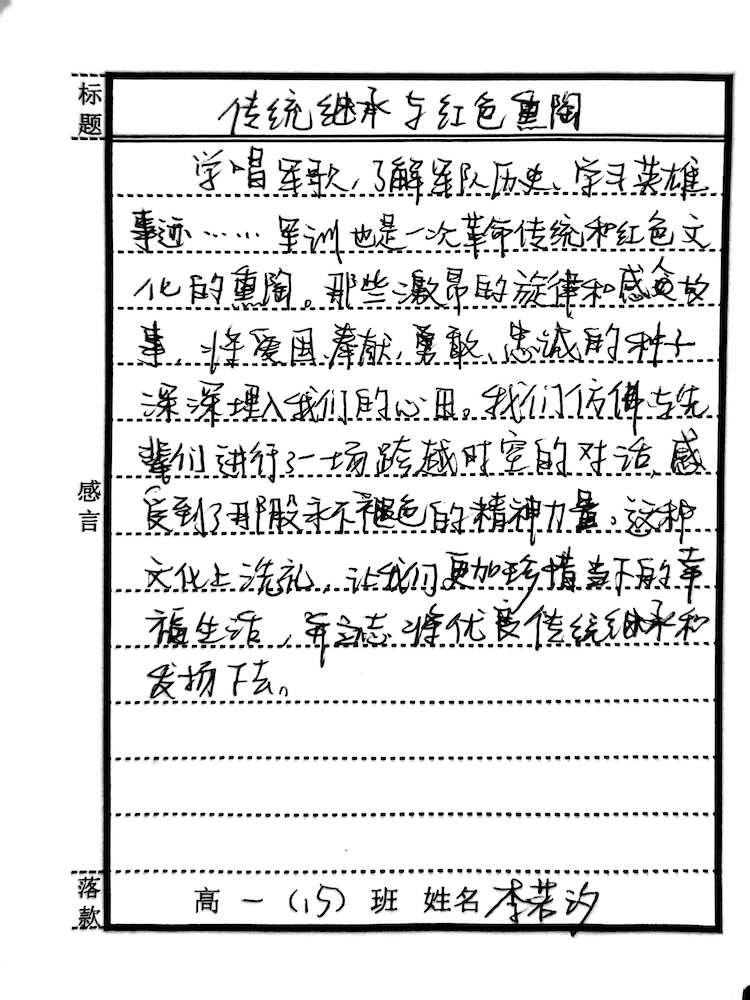 标题
传统继承与红色熏陶
学唱军歌，了解军队历史、学习英雄
事迹……军训也是一次革命传统和红色文
化的熏陶。那些激昂的旋律和感人故
事，将爱国、奉献、勇敢、忠诚的种子
深深埋入我们的心田。我们仿佛与先
辈们进行了一场跨越时空的对话，感
受到了那股永不褪色的精神力量。这种
文化上洗礼，让我们更加珍惜当下的幸
福生活，并立志将优良传统继承和
发扬下去。
感言
落款
高一（15）班 姓名 李若汐